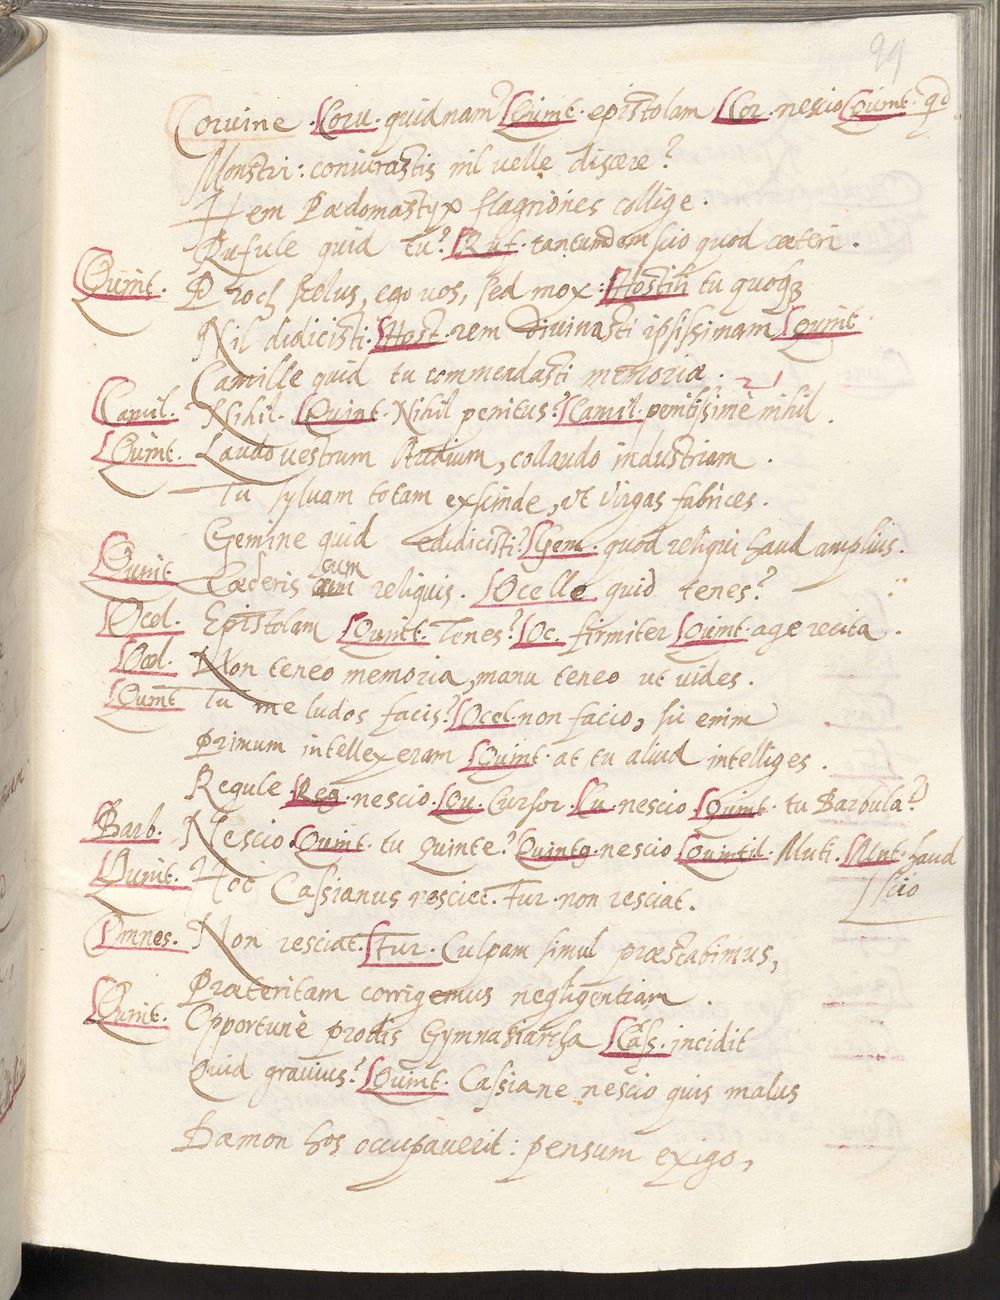 99
Coruine. Coru. quidnam? Quint. epistolam Cor. nescio Quint. qd
Monstri: coniurastis nil velle discere?
Hem Pædomastyx flagriones collige.
Rufule quid tu? Ruf. tantundem scio quod cæteri.
Quint. Proh scelus, ego vos, sed mox: Hostili tu quoque
Nil didicisti. Host. rem divinasti ipsissimam Quint.
Camille quid tu commendasti memoriæ.
Camil. Nihil. Quint. Nihil penitus? Camil. penitissimè nihil.
Quint. Laudo vestrum studium, collaudo industriam.
Tu sylvam totam exscinde, et virgas fabrices.
Gemine quid edidicisti? Gem. quod reliqui haud amplius.
Quint. Cæderis cum reliquis. Ocelle quid tenes?
Ocel. Epistolam Quint. Tenes? Oc. firmiter Quint. age recita.
Ocel. Non teneo memoria, manu teneo ut vides.
Quint Tu me ludos facis? Ocel. non facio, sic enim
Primum intellexeram Quint. at tu aliud intelliges.
Regule Reg. nescio. Qu. Cursor. Cu. nescio Quint. tu Barbula?
Barb. Nescio. Quint. tu Quinte? Quintq. nescio Quintil. Muti. Mut. haud
scio
Quint. Hoc Cassianus resciet. Fur. non resciat.
Omnes. Non resciat. Fur. Culpam simul præstabimus,
Præteritam corrigemus negligentiam.
Quint. Opportunè prodis Gymnasiarcha Cass. incidit
Quid gravius? Quint. Cassiane nescio quis malus
Dæmon hos occupaverit: pensum exigo,